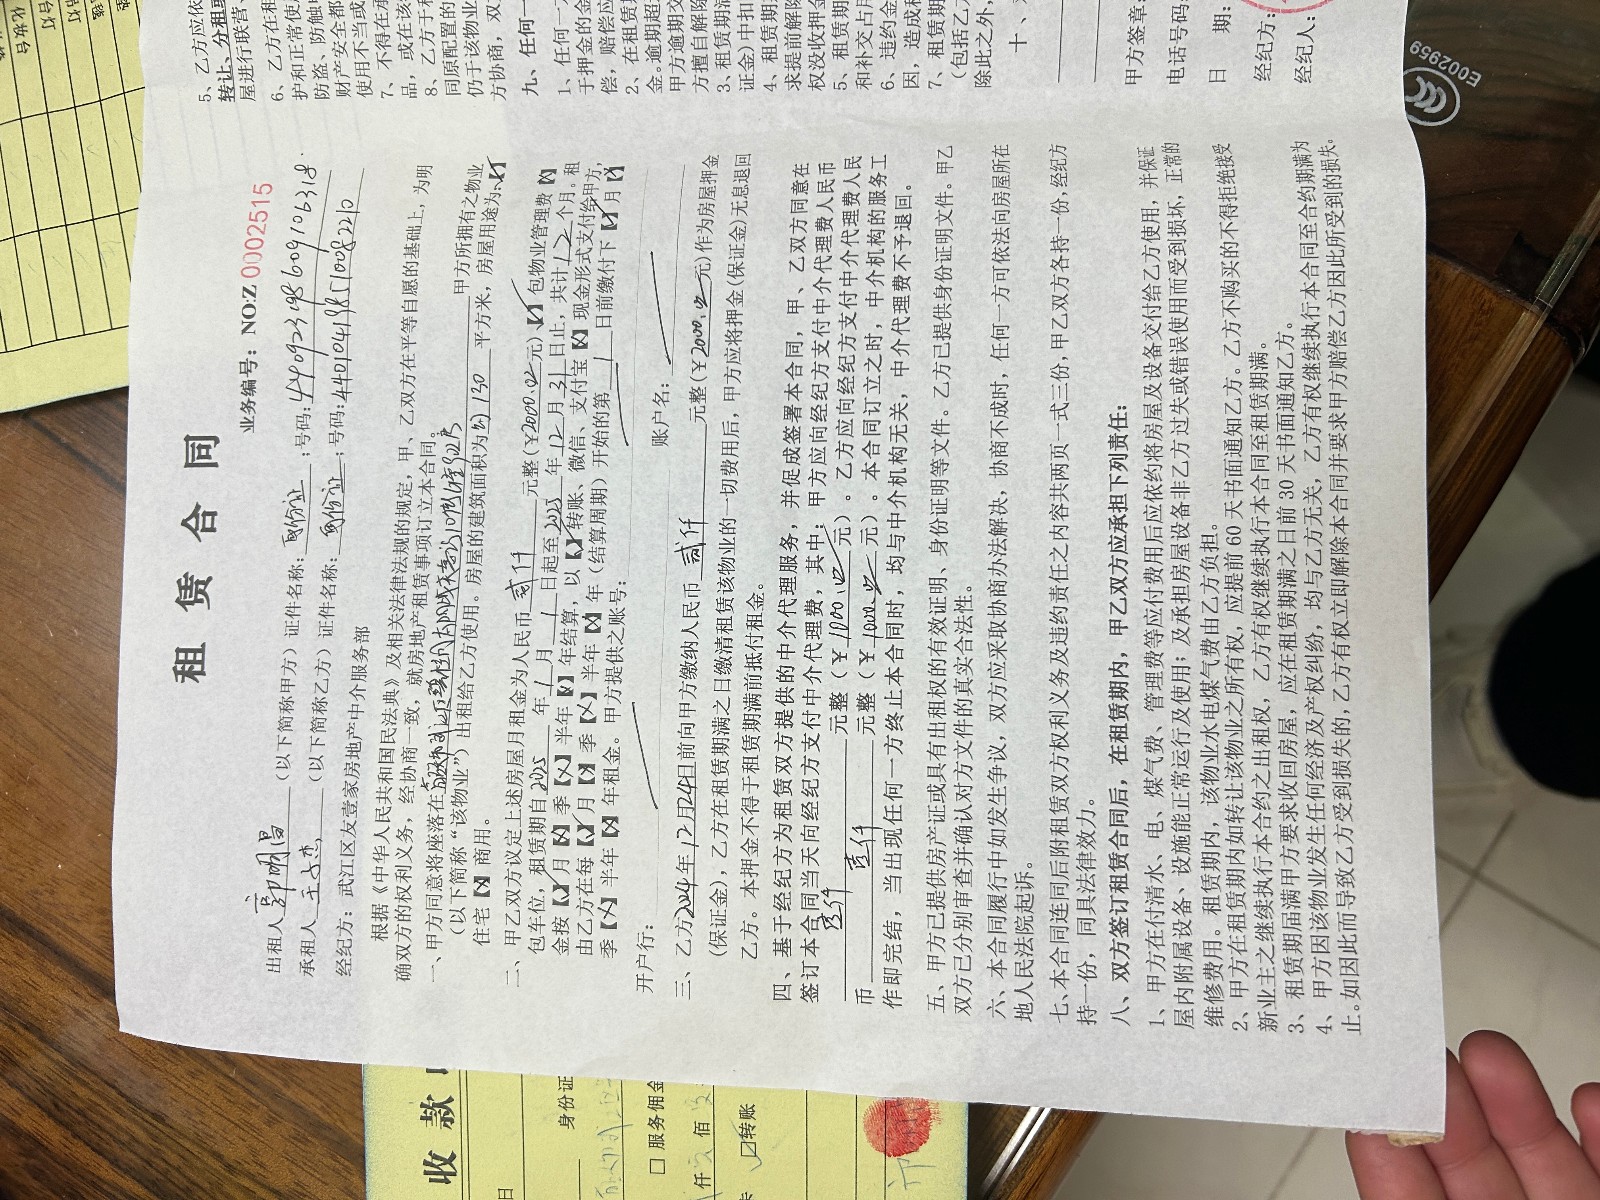 租赁合同
业务编号：NO:Z 0002515
出租人 郭明昌 （以下简称甲方）证件名称：身份证；号码：
承租人 王 杰 （以下简称乙方）证件名称：身份证；号码：
经纪方：武江区友壹家房地产中介服务部
根据《中华人民共和国民法典》及相关法律法规的规定，甲、乙双方在平等自愿的基础上，为明
确双方的权利义务，经协商一致，就房地产租赁事项订立本合同。
一、甲方同意将座落在 甲方所拥有之物业
（以下简称“该物业”）出租给乙方使用。房屋的建筑面积为 约130 平方米，房屋用途为：【✓】
住宅【×】商用。
二、甲乙双方议定上述房屋月租金为人民币 贰仟 元整（¥2000.00元）【✓】包物业管理费【×】
包车位，租赁期自 2025 年 1 月 1 日起至 2025 年 12 月 31 日止，共计 12 个月。租
金按【✓】月【×】季【×】半年【×】年结算，以【✓】转账、微信、支付宝【×】现金形式支付给甲方，
由乙方在每【✓】月【×】季【×】半年【×】年（结算周期）开始的第 1 日前缴付下【✓】月【×】
季【×】半年【×】年租金。甲方提供之账号：
开户行： 账户名：
三、乙方2024年12月24日前向甲方缴纳人民币 贰仟 元整（¥2000.00元）作为房屋押金
（保证金），乙方在租赁期满之日缴清租赁该物业的一切费用后，甲方应将押金（保证金）无息退回
乙方。本押金不得于租赁期满前抵付租金。
四、基于经纪方为租赁双方提供的中介代理服务，并促成签署本合同，甲、乙双方同意在
签订本合同当天向经纪方支付中介代理费，其中：甲方应向经纪方支付中介代理费人民币
壹仟 元整（¥1000.00元）。乙方应向经纪方支付中介代理费人民
币 壹仟 元整（¥1000.00元）。本合同订立之时，中介机构的服务工
作即完结，当出现任何一方终止本合同时，均与中介机构无关，中介代理费不予退回。
五、甲方已提供房产证或具有出租权的有效证明、身份证明等文件。乙方已提供身份证明文件。甲乙
双方已分别审查并确认对方文件的真实合法性。
六、本合同履行中如发生争议，双方应采取协商办法解决，协商不成时，任何一方可依法向房屋所在
地人民法院起诉。
七、本合同连同后附租赁双方权利义务及违约责任之内容共两页一式三份，甲乙双方各持一份，经纪方
持一份，同具法律效力。
八、双方签订租赁合同后，在租赁期内，甲乙双方应承担下列责任：
1、甲方在付清水、电、煤气费、管理费等应付费用后应依约将房屋及设备交付给乙方使用，并保证
屋内附属设备、设施能正常运行及使用；及承担房屋设备非乙方过失或错误使用而受到损坏，正常的
维修费用。租赁期内，该物业水电煤气费由乙方负担。
2、甲方在租赁期内如转让该物业之所有权，应提前 60 天书面通知乙方。乙方不购买的不得拒绝接受
新业主之继续执行本合约之出租权，乙方有权继续执行本合同至租赁期满。
3、租赁期届满甲方要求收回房屋，应在租赁期满之日前 30 天书面通知乙方。
4、甲方因该物业发生任何经济及产权纠纷，均与乙方无关，乙方有权继续执行本合同至合约期满为
止。如因此而导致乙方受到损失的，乙方有权立即解除本合同并要求甲方赔偿乙方因此所受到的损失。
5、乙方应依
转让、分租或
屋进行联营、
6、乙方在租
护和正常使用
防盗、防触电
财产安全都
使用不当或
7、不得在承
品，或在该
8、乙方于租
同原配置的
仍于该物业
方协商，双
九、任何一
1、任何一方
于押金的金
偿，赔偿应
2、在租赁期
金。逾期超
甲方逾期交
方擅自解除
3、租赁期满
证金）中扣
4、租赁期
求提前解除
权没收押金
5、租赁期
和补交占用
6、违约金
因，造成租
7、租赁期
（包括乙方
除此之外，
十、
甲方签章：
电话号码：
日 期：
经纪方：
经纪人：
收款
日
身份证
服务佣金
仟 佰
转账
E002959